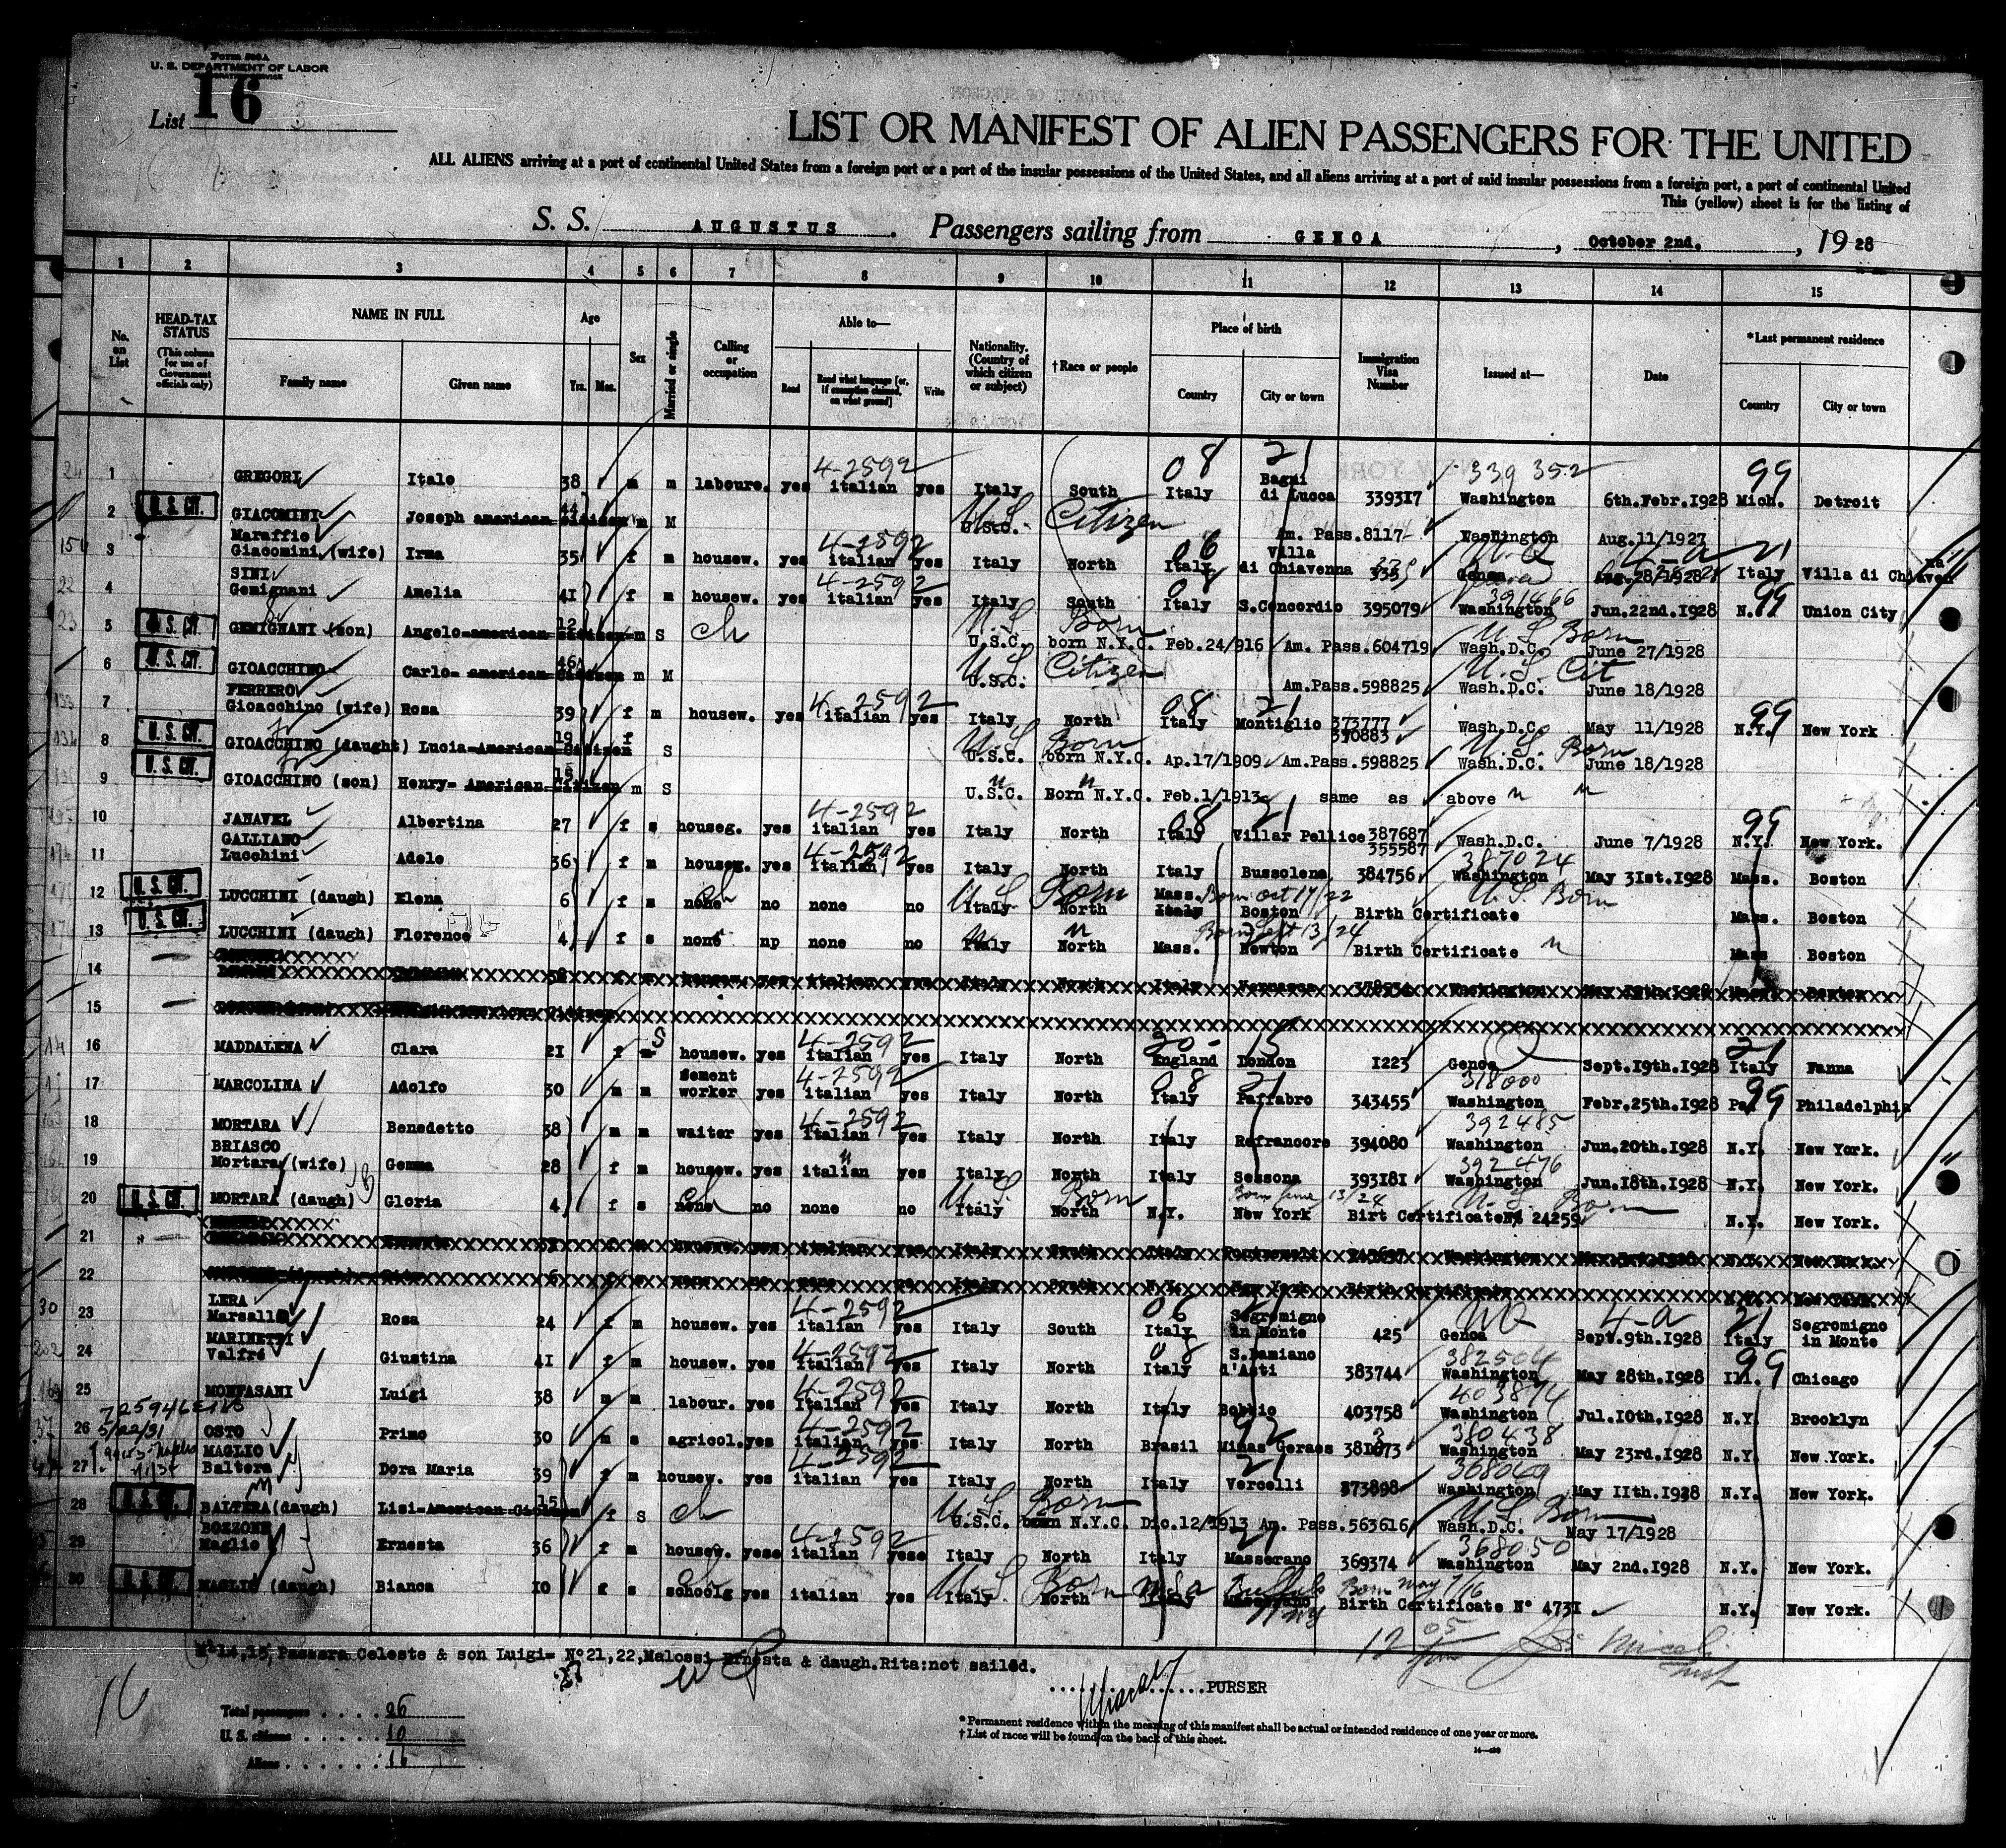 Form 500A
U. S. DEPARTMENT OF LABOR
List 16
LIST OR MANIFEST OF ALIEN PASSENGERS FOR THE UNITED
ALL ALIENS arriving at a port of continental United States from a foreign port or a port of the insular possessions of the United States, and all aliens arriving at a port of said insular possessions from a foreign port, a port of continental United
This (yellow) sheet is for the listing of
S. S. AUGUSTUS. Passengers sailing from GENOA, October 2nd., 1928
1 2 3 4 5 6 7 8 9 10 11 12 13 14 15
No. on List
HEAD-TAX STATUS (This column for use of Government officials only)
NAME IN FULL
Family name Given name
Age
Yrs. Mos.
Sex
Married or single
Calling or occupation
Able to—
Read Read what language [or, if exemption claimed, on what ground] Write
Nationality. (Country of which citizen or subject)
†Race or people
Place of birth
Country City or town
Immigration Visa Number
Issued at—
Date
*Last permanent residence
Country City or town
4-2592 08 21 339 352 99
1 GREGORI Italo 38 m m laboure. yes italian yes Italy South Italy Bagni di Lucca 339317 Washington 6th.Febr.1928 Mich. Detroit
2 U.S. CIT. GIACOMINI Joseph american citizen 44 m M U.S.C. US Citizen Am. Pass.8117 Washington Aug.11/1927
3 Maraffio Giacomini (wife) Irma 35 f m housew. yes italian 4-2592 yes Italy North 06 Italy Villa di Chiavenna 335 Genoa Aug.28/1928 21 Italy Villa di Chiavenna
4 SINI Gemignani Amelia 41 f m housew. yes italian 4-2592 yes Italy South Italy S.Concordio 395079 391466 Washington Jun.22nd.1928 N. 99 Union City
5 U.S. CIT. GEMIGNANI (son) Angelo-american-citizen 12 m S ch U.S.C. US Born born N.Y.C. Feb.24/916 Am. Pass.604719 Wash.D.C. U.S Born June 27/1928
6 U.S. CIT. GIOACCHINO Carlo- american-citizen 46 m M U.S.C. US Citizen Am.Pass.598825 Wash.D.C. U.S. Cit June 18/1928
7 FERRERO Gioacchino (wife) Rosa 39 f m housew. yes italian 4-2592 yes Italy North 08 Italy 21 Montiglio 373777 370883 Wash.D.C. May 11/1928 99 N.Y. New York
8 U.S. CIT. GIOACCHINO (daught) Lucia-American-Citizen 19 f S U.S.C. US Born born N.Y.C. Ap.17/1909 Am.Pass.598825 Wash.D.C. U.S. Born June 18/1928
9 U.S. CIT. GIOACCHINO (son) Henry- American-Citizen 15 m S U.S.C. Born N.Y.C. Feb.1/1913 same as above
10 JANAVEL Albertina 27 f s houseg. yes italian 4-2592 yes Italy North 08 Italy 21 Villar Pellice 387687 355587 Wash.D.C. June 7/1928 99 N.Y. New York.
11 GALLIANO Lucchini Adele 36 f m housew. yes italian 4-2592 yes Italy North Italy Bussolena 384756 387024 Washington May 31st.1928 Mass. Boston
12 U.S. CIT. LUCCHINI (daugh) Elena 6 f s none ch no none no Italy US Born North Mass. Italy Born oct 17/22 Boston Birth Certificate U.S. Born Mass. Boston
13 U.S. CIT. LUCCHINI (daugh) Florence 4 f s none np none no Italy North Mass. Born Sept 13/24 Newton Birth Certificate Mass Boston
14
15
16 MADDALENA Clara 21 f m S housew. yes italian 4-2592 yes Italy North England London 15 1223 Genoa Sept.19th.1928 21 Italy Fanna
17 MARCOLINA Adolfo 30 m m Sement worker yes italian 4-2592 yes Italy North 08 Italy 21 Paffabro 343455 318000 Washington Febr.25th.1928 Pa. 99 Philadelphia
18 MORTARA Benedetto 38 m m waiter yes italian 4-2592 yes Italy North Italy Refrancore 394080 392485 Washington Jun.20th.1928 N.Y. New York.
19 BRIASCO Mortara (wife) Gemma 28 f m housew. yes italian yes Italy North Italy Sessona 393181 392476 Washington Jun.18th.1928 N.Y. New York.
20 U.S. CIT. MORTARA (daugh) Gloria 4 f s none ch no none no Italy U.S. Born North N.Y. Born June 13/24 New York Birt Certificate Nº 24259 U.S. Born N.Y. New York.
21
22
23 LERA Marsalla Rosa 24 f m housew. yes italian 4-2592 yes Italy South 06 Italy Segromigno in Monte 425 Genoa NQ Sept.9th.1928 4-a 21 Italy Segromigno in Monte
24 MARINETTI Valfré Giustina 41 f m housew. yes italian 4-2592 yes Italy North 08 Italy S.Damiano d'Asti 383744 382564 Washington May 28th.1928 Ill. 99 Chicago
25 MONFASANI Luigi 38 m m labour. yes italian 4-2592 yes Italy North Italy Bobbio 403758 403874 Washington Jul.10th.1928 N.Y. Brooklyn
26 5/22/31 OSTO Primo 30 m s agricol. yes italian 4-2592 yes Italy North Brasil 92 Minas Geraes 381873 380438 Washington May 23rd.1928 N.Y. New York.
27 MAGLIO Baltera Dora Maria 39 f m housew. yes italian 4-2592 yes Italy North Italy 21 Vercelli 373898 368049 Washington May 11th.1928 N.Y. New York.
28 U.S. CIT. BALTERA (daugh) Lisi-American-Citizen 15 f S ch U.S.C. US Born born N.Y.C. Dic.12/1913 Am. Pass.563616 Wash.D.C. U S Born May 17/1928
29 BOZZONE Maglio Ernesta 36 f m housew. yese italian 4-2592 yese Italy North Italy 21 Masserano 369374 368050 Washington May 2nd.1928 N.Y. New York.
30 U.S. CIT. MAGLIO (daugh) Bianca 10 f s schoolg ch yes italian yes Italy U.S. Born North Italy Buffalo NY Born may Birth Certificate Nº 4731 N.Y. New York.
Nº14,15, Passera Celeste & son Luigi= Nº21,22,Malossi Ernesta & daugh.Rita:not sailed.
12 05 pm
PURSER
16
Total passengers . . . . 26
U. S. citizens . . . . . 10
Aliens . . . . . . 16
*Permanent residence within the meaning of this manifest shall be actual or intended residence of one year or more.
†List of races will be found on the back of this sheet.